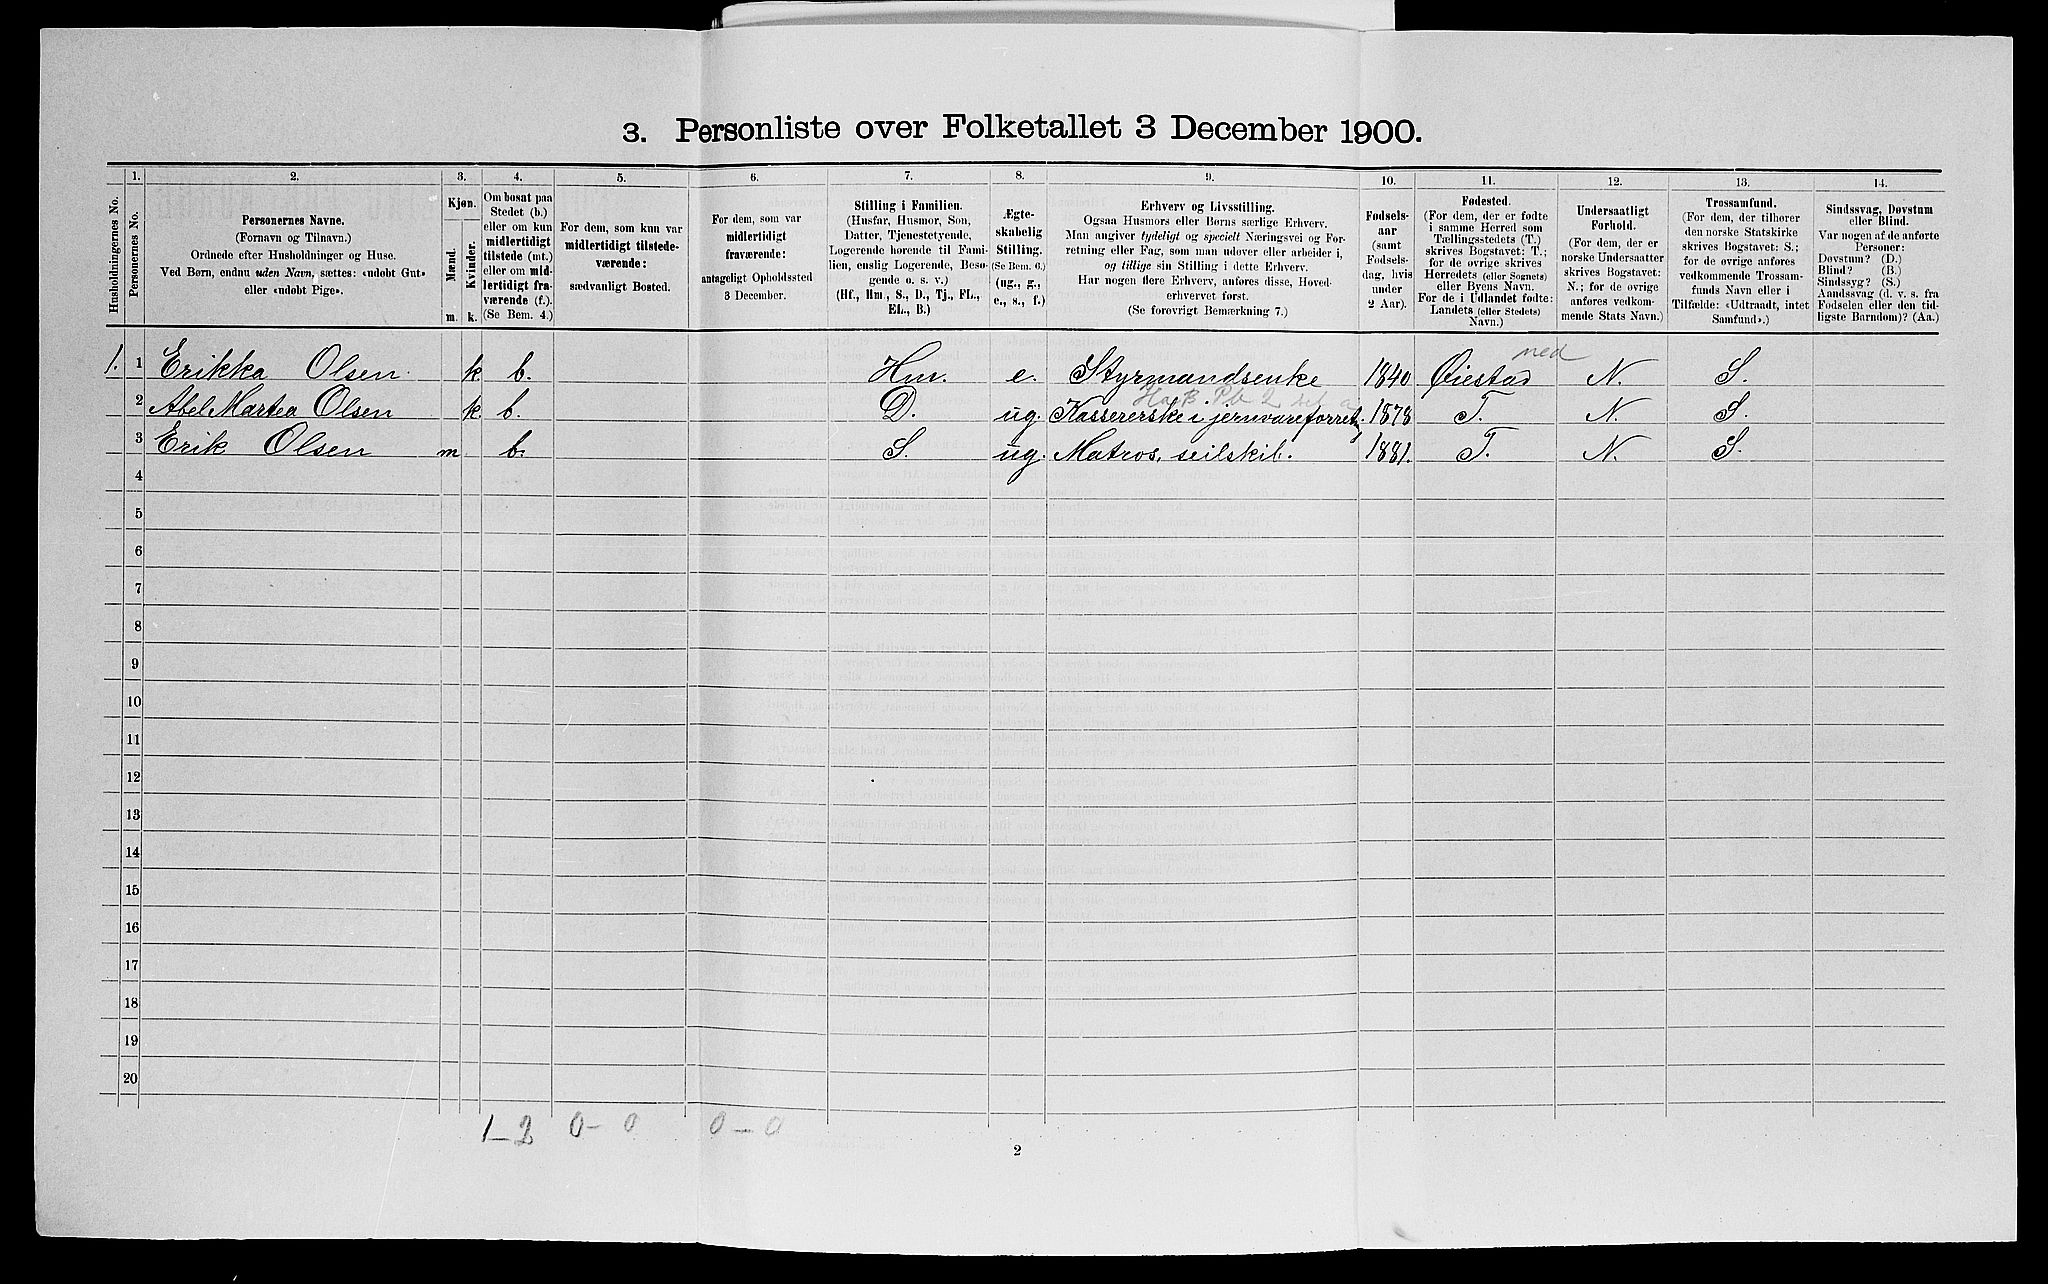 3. Personliste over Folketallet 3 December 1900.
1. 2. 3. 4. 5. 6. 7. 8. 9. 10. 11. 12. 13. 14.
Husholdningernes No.
Personernes No.
Personernes Navne.
(Fornavn og Tilnavn.)
Ordnede efter Husholdninger og Huse.
Ved Børn, endnu uden Navn, sættes: «udøbt Gut»
eller «udøbt Pige».
Kjøn.
Mænd.
Kvinder.
m. k.
Om bosat paa
Stedet (b.)
eller om kun
midlertidigt
tilstede (mt.)
eller om mid-
lertidigt fra-
værende (f.).
(Se Bem. 4.)
For dem, som kun var
midlertidigt tilstede-
værende:
sædvanligt Bosted.
For dem, som var
midlertidigt
fraværende:
antageligt Opholdssted
3 December.
Stilling i Familien.
(Husfar, Husmor, Søn,
Datter, Tjenestetyende,
Logerende hørende til Fami-
lien, enslig Logerende, Besø-
gende o. s. v.)
(Hf., Hm., S., D., Tj., FL.,
EL., B.)
Ægte-
skabelig
Stilling.
(Se Bem. 6.)
(ug., g.,
e., s., f.)
Erhverv og Livsstilling.
Ogsaa Husmors eller Børns særlige Erhverv.
Man angiver tydeligt og specielt Næringsvei og For-
retning eller Fag, som man udøver eller arbeider i,
og tillige sin Stilling i dette Erhverv.
Har nogen flere Erhverv, anføres disse, Hoved-
erhvervet først.
(Se forøvrigt Bemærkning 7.)
Fødsels-
aar
(samt
Fødsels-
dag, hvis
under
2 Aar).
Fødested.
(For dem, der er fødte
i samme Herred som
Tællingsstedets (T.)
skrives Bogstavet: T.;
for de øvrige skrives
Herredets (eller Sognets)
eller Byens Navn.
For de i Udlandet fødte:
Landets (eller Stedets)
Navn.)
Undersaatligt
Forhold.
(For dem, der er
norske Undersaatter
skrives Bogstavet:
N.; for de øvrige
anføres vedkom-
mende Stats Navn.)
Trossamfund.
(For dem, der tilhører
den norske Statskirke
skrives Bogstavet: S.;
for de øvrige anføres
vedkommende Trossam-
funds Navn eller i
Tilfælde: «Udtraadt, intet
Samfund».)
Sindssvag, Døvstum
eller Blind.
Var nogen af de anførte
Personer:
Døvstum? (D.)
Blind? (B.)
Sindssyg? (S.)
Aandssvag (d. v. s. fra
Fødselen eller den tid-
ligste Barndom)? (Aa.)
1. 1 Erikka Olsen. k. b. Hm. e. Styrmandsenke 1840 Øiestad ned N. S.
2 Abel Martea Olsen k. b. D. ug. Kassererske i jernvareforretn. 1878 T. N. S.
3 Erik Olsen m. b. S. ug. Matros, seilskib. 1881. T. N. S.
4
5
6
7
8
9
10
11
12
13
14
15
16
17
18
19
20
1-2 0-0 0-0
2